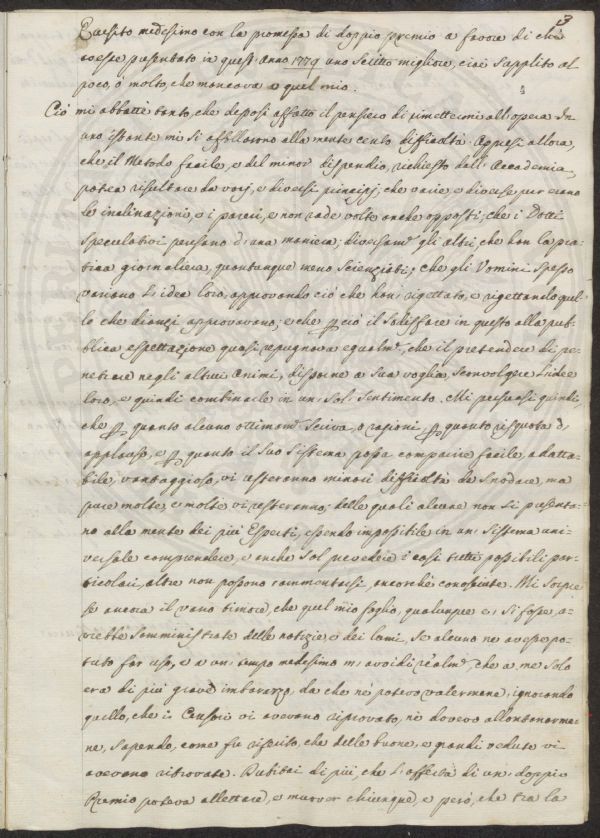 3
Quesito medesimo con la promessa di doppio premio a favore di chi
avesse presentato in quest'anno 1779 uno scritto migliore, cioè supplito al
poco, o molto, che mancava a quel mio.
Ciò mi abbattè tanto, che deposi affatto il pensiero di rimettermi all'opera. In
uno istante mi si affollarono alla mente cento difficoltà. Appresi allora,
che il Metodo facile, e del minor dispendio, richiesto dall'Accademia,
potea risultare da varj, e diversi principj; che varie, e diverse pur erano
le inclinazioni, e i pareri, e non rade volte anche opposti; che i Dotti
speculativi pensano d'una maniera; diversam.e gli altri, che han la pra-
tica giornaliera, quantunque meno scienziati; che gli Uomini spesso
variano l'idee loro, approvando ciò che han rigettato, e rigettando quel-
lo che dianzi approvavano; e che p ciò il sodisfare in questo alla pub-
blica espettazione quasi repugnava egualm.e, che il pretendere di pe-
netrare negli altrui animi, disporne a sua voglia, sconvolgere l'idee
loro, e quindi combinarle in un sol sentimento. Mi persuasi quindi,
che p quanto alcuno ottimam.e scriva, o ragioni, p quanto risquota d'
applauso, e p quanto il suo sistema possa comparire facile, adatta-
bile, vantaggioso, vi resteranno minori difficoltà da snodare, ma
pure molte, e molte vi resteranno; delle quali alcune non si presenta-
no alla mente dei più Esperti, essendo impossibile in un sistema uni-
versale comprendere, e anche sol prevedere i casi tutti possibili par-
ticolari, altre non possono rammentarsi, ancorchè conosciute. Mi sorpre-
se ancora il vano timore, che quel mio foglio, qualunque ei si fosse, a-
vrebbe somministrate delle notizie, e dei lumi, se alcuno ne avesse po-
tuto far uso, e a un tempo medesimo m'avvidi realm.e, che a me solo
era di più grave imbarazzo, da che nè potevo valermene, ignorando
quello, che i Censori vi avevano riprovato, nè dovevo allontanarme-
ne, sapendo, come fu riferito, che delle buone, e grandi vedute vi
avevano ritrovate. Dubitai di più, che l'offerta di un doppio
Premio poteva allettare, e muover chiunque, e però, che tra la